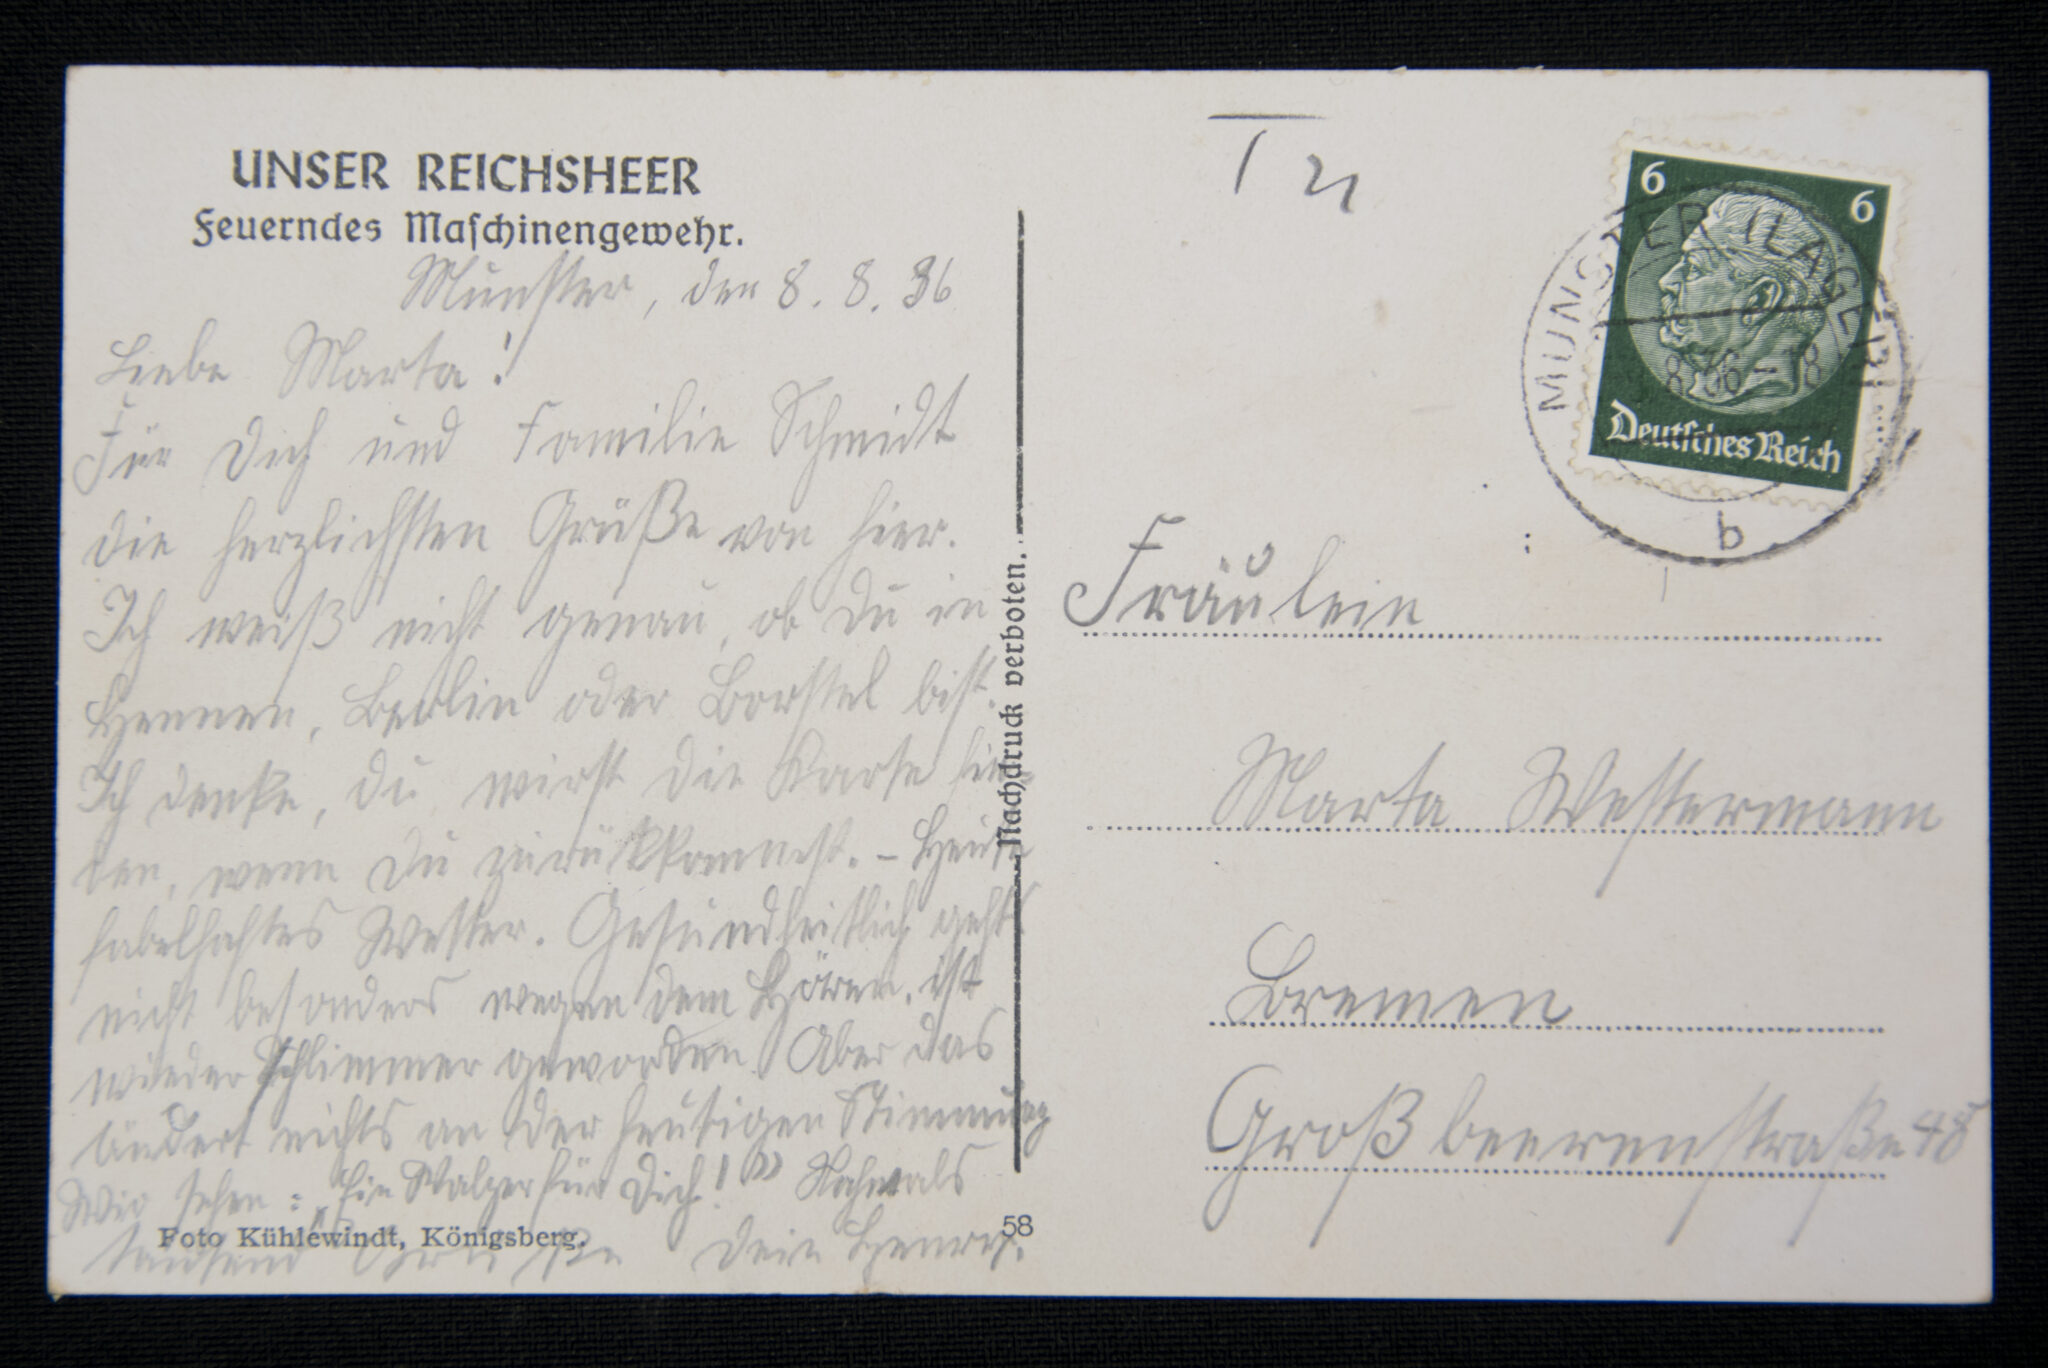 UNSER REICHSHEER
Feuerndes Maschinengewehr.
Munster, den 8. 8. 36
Liebe Marta!
Für Dich und Familie Schmidt
die herzlichsten Grüße von hier.
Ich weiß nicht genau, ob Du in
Hennen, Berlin oder Borstel bist.
Ich denke, Du wirst die Karte fin=
den, wenn Du zurückkommst. – Heute
fabelhaftes Wetter. Gesundheitlich geht's
nicht besonders wegen dem Hören, ist
wieder schlimmer geworden. Aber das
ändert nichts an der heutigen Stimmung
Wir sehen: „Ein Walzer für Dich!" Nochmals
tausend Grüße Dein Henry.
Foto Kühlewindt, Königsberg.
58
Nachdruck verboten.
6 6
Deutsches Reich
MUNSTER (LAGER)
8.36 – 18
b
Fräulein
Marta Westermann
Bremen
Großbeerenstraße 48